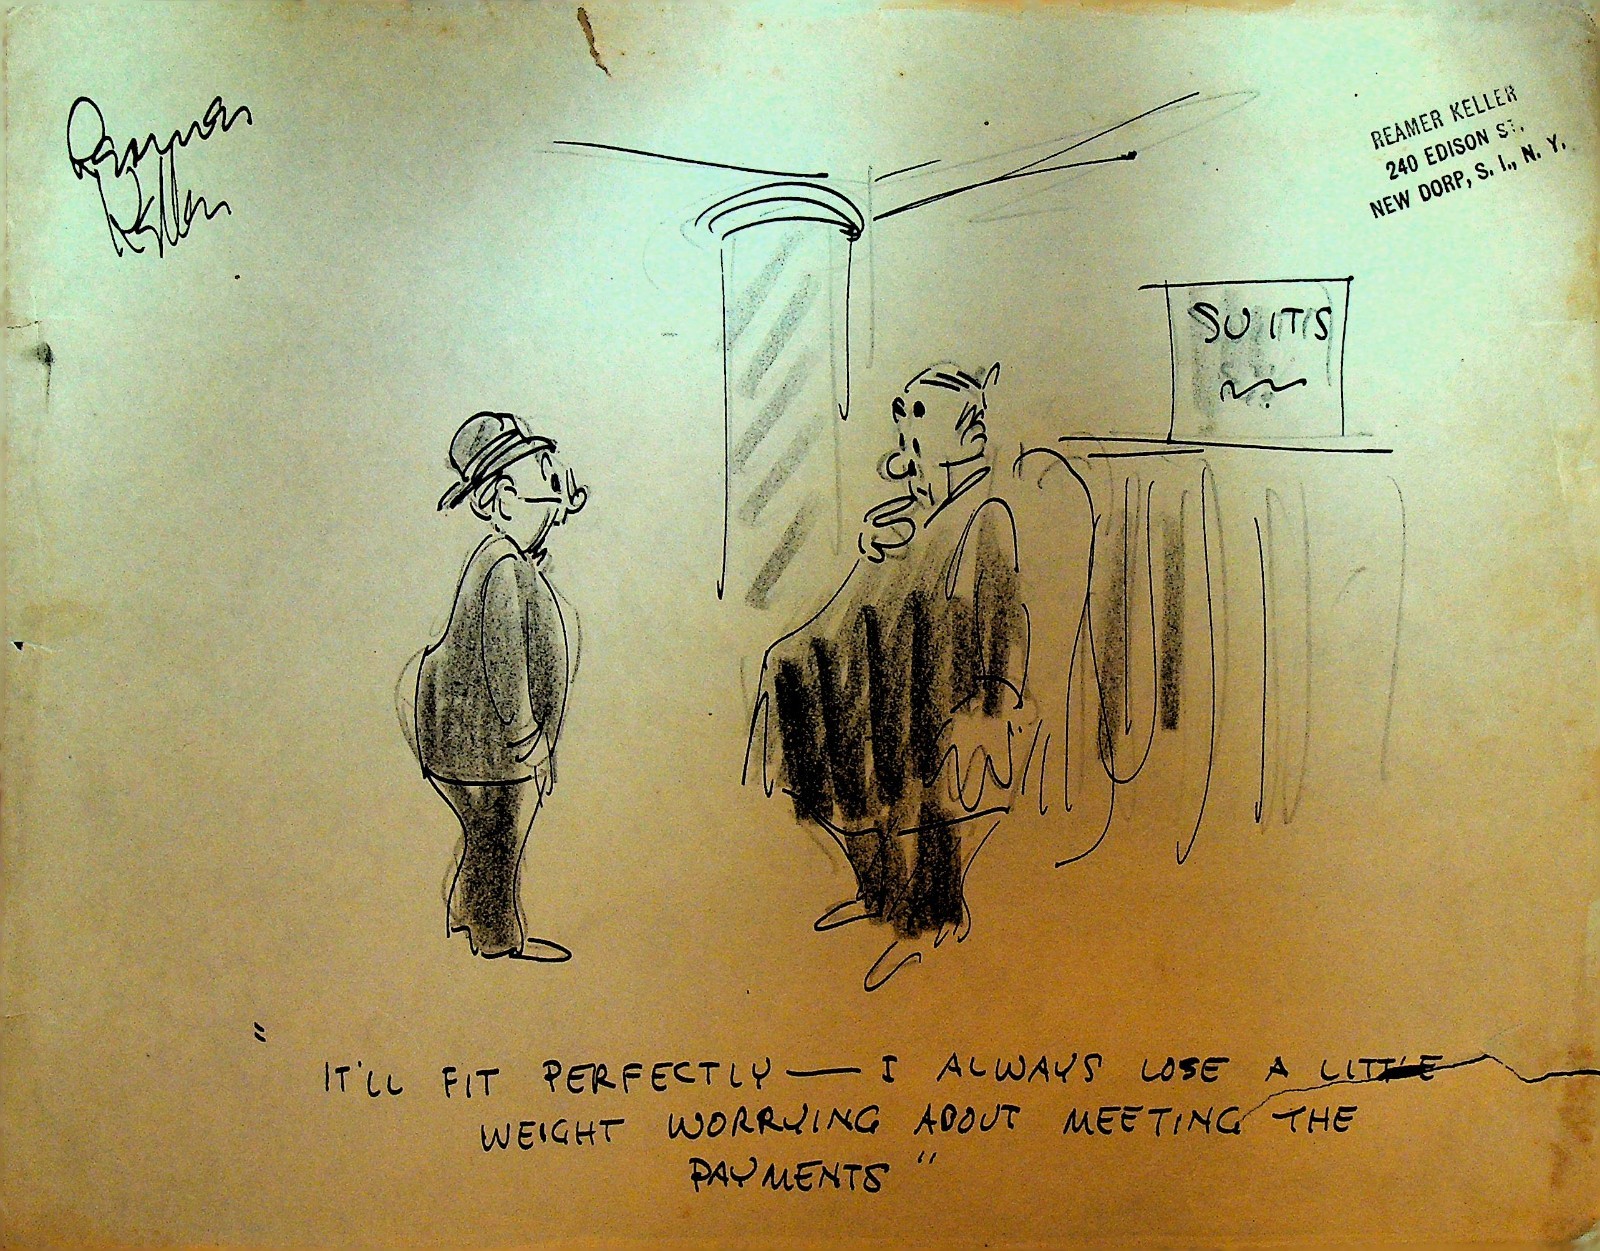 Reamer
Keller
REAMER KELLER
240 EDISON ST.
NEW DORP, S. I., N. Y.
SUITS
"IT'LL FIT PERFECTLY — I ALWAYS LOSE A LITTLE
WEIGHT WORRYING ABOUT MEETING THE
PAYMENTS"